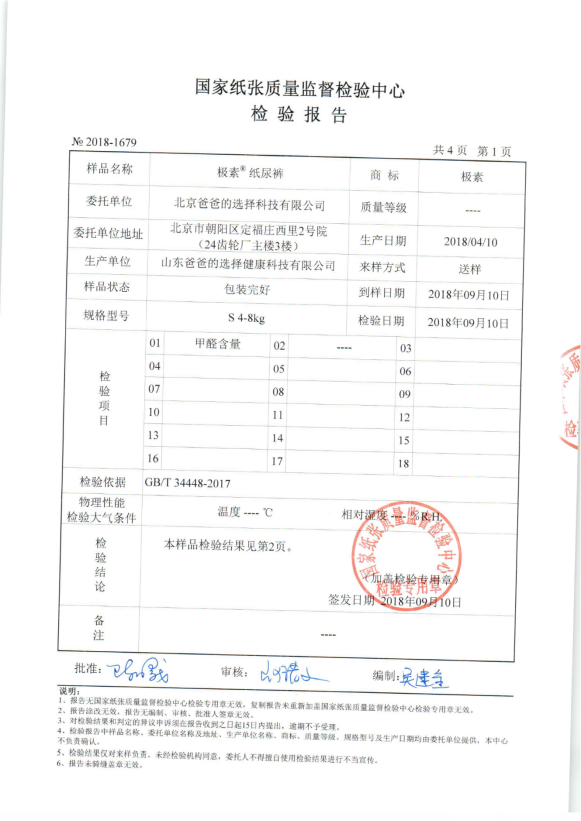 国家纸张质量监督检验中心
检验报告
№ 2018-1679
共 4 页 第 1 页
样品名称 极素® 纸尿裤 商 标 极素
委托单位 北京爸爸的选择科技有限公司 质量等级 ----
委托单位地址 北京市朝阳区定福庄西里2号院
（24齿轮厂主楼3楼） 生产日期 2018/04/10
生产单位 山东爸爸的选择健康科技有限公司 来样方式 送样
样品状态 包装完好 到样日期 2018年09月10日
规格型号 S 4-8kg 检验日期 2018年09月10日
检验项目
01 甲醛含量 02 ---- 03
04 05 06
07 08 09
10 11 12
13 14 15
16 17 18
检验依据 GB/T 34448-2017
物理性能
检验大气条件 温度 ---- ℃ 相对湿度 ---- %R.H.
检验结论
本样品检验结果见第2页。
国家纸张质量监督检验中心
检验专用章
（加盖检验专用章）
签发日期 2018年09月10日
备注 ----
批准： 审核： 编制：吴建全
说明：
1、报告无国家纸张质量监督检验中心检验专用章无效，复制报告未重新加盖国家纸张质量监督检验中心检验专用章无效。
2、报告涂改无效，报告无编制、审核、批准人签章无效。
3、对检验结果和判定的异议申诉须在报告收到之日起15日内提出，逾期不予受理。
4、检验报告中样品名称、委托单位名称及地址、生产单位名称、商标、质量等级、规格型号及生产日期均由委托单位提供，本中心
不负责确认。
5、检验结果仅对来样负责，未经检验机构同意，委托人不得擅自使用检验结果进行不当宣传。
6、报告未骑缝盖章无效。